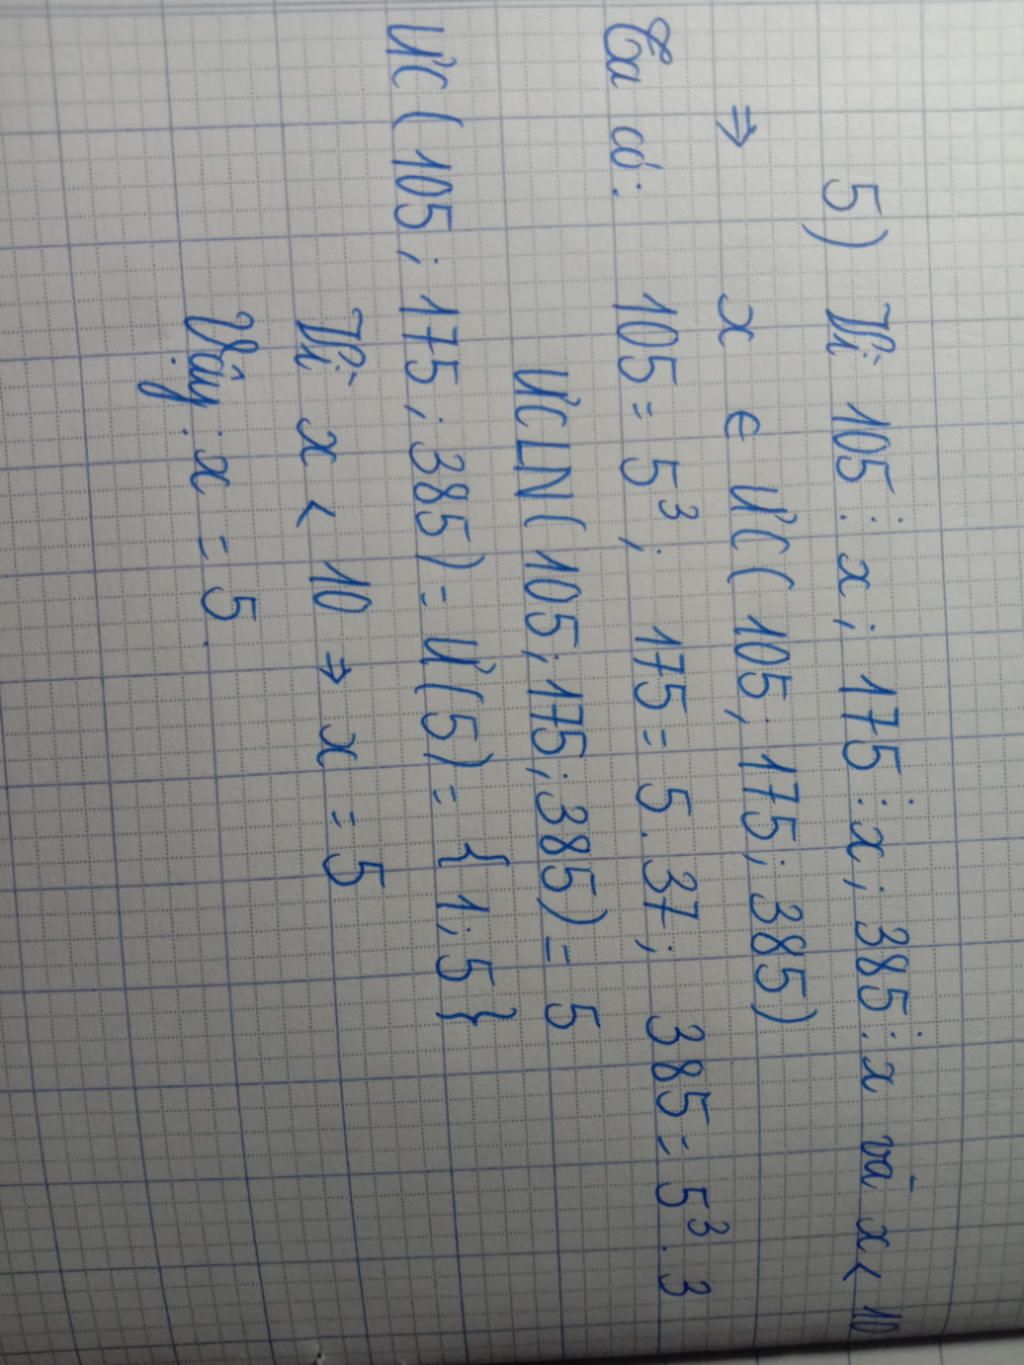 5) Vì 105 ⋮ x; 175 ⋮ x; 385 ⋮ x và x < 10
⇒ x ∈ ƯC(105; 175; 385)
Ta có: 105 = 5³; 175 = 5.37; 385 = 5³.3
ƯCLN(105; 175; 385) = 5
ƯC(105; 175; 385) = Ư(5) = {1; 5}
Vì x < 10 ⇒ x = 5
Vậy: x = 5.